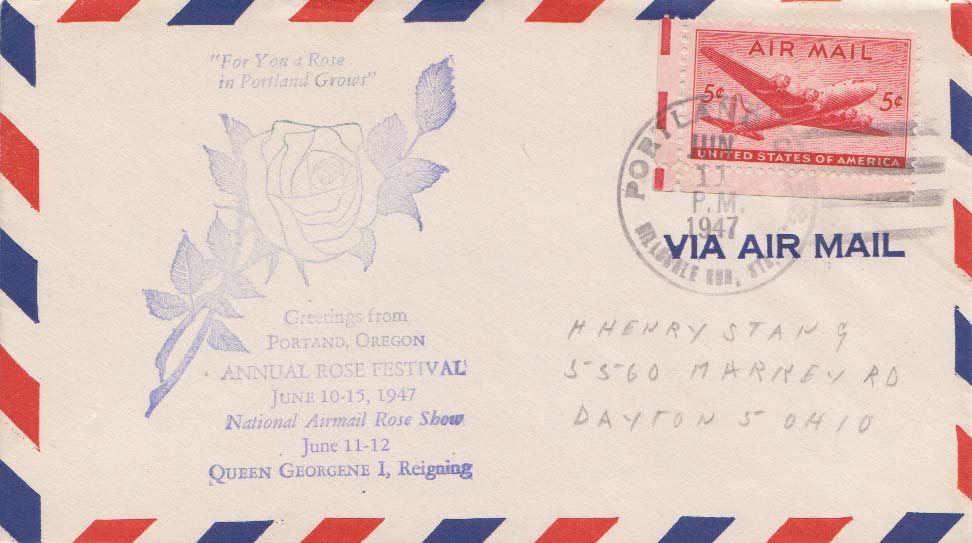 "For You a Rose
in Portland Grows"
Greetings from
PORTAND, OREGON
ANNUAL ROSE FESTIVAL
JUNE 10-15, 1947
National Airmail Rose Show
June 11-12
QUEEN GEORGENE I, Reigning
AIR MAIL
5¢ 5¢
UNITED STATES OF AMERICA
PORTLAND
JUN
11
P.M.
1947
HILLSDALE RUR. STA.
VIA AIR MAIL
H HENRY STANG
5560 MARKEY RD
DAYTON 5 OHIO